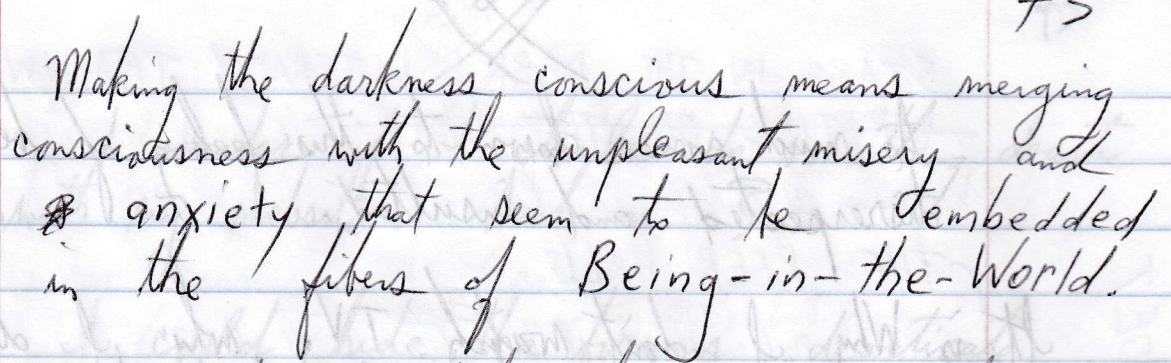 Making the darkness conscious means merging
consciousness with the unpleasant misery and
anxiety that seem to be embedded
in the fibers of Being-in-the-World.